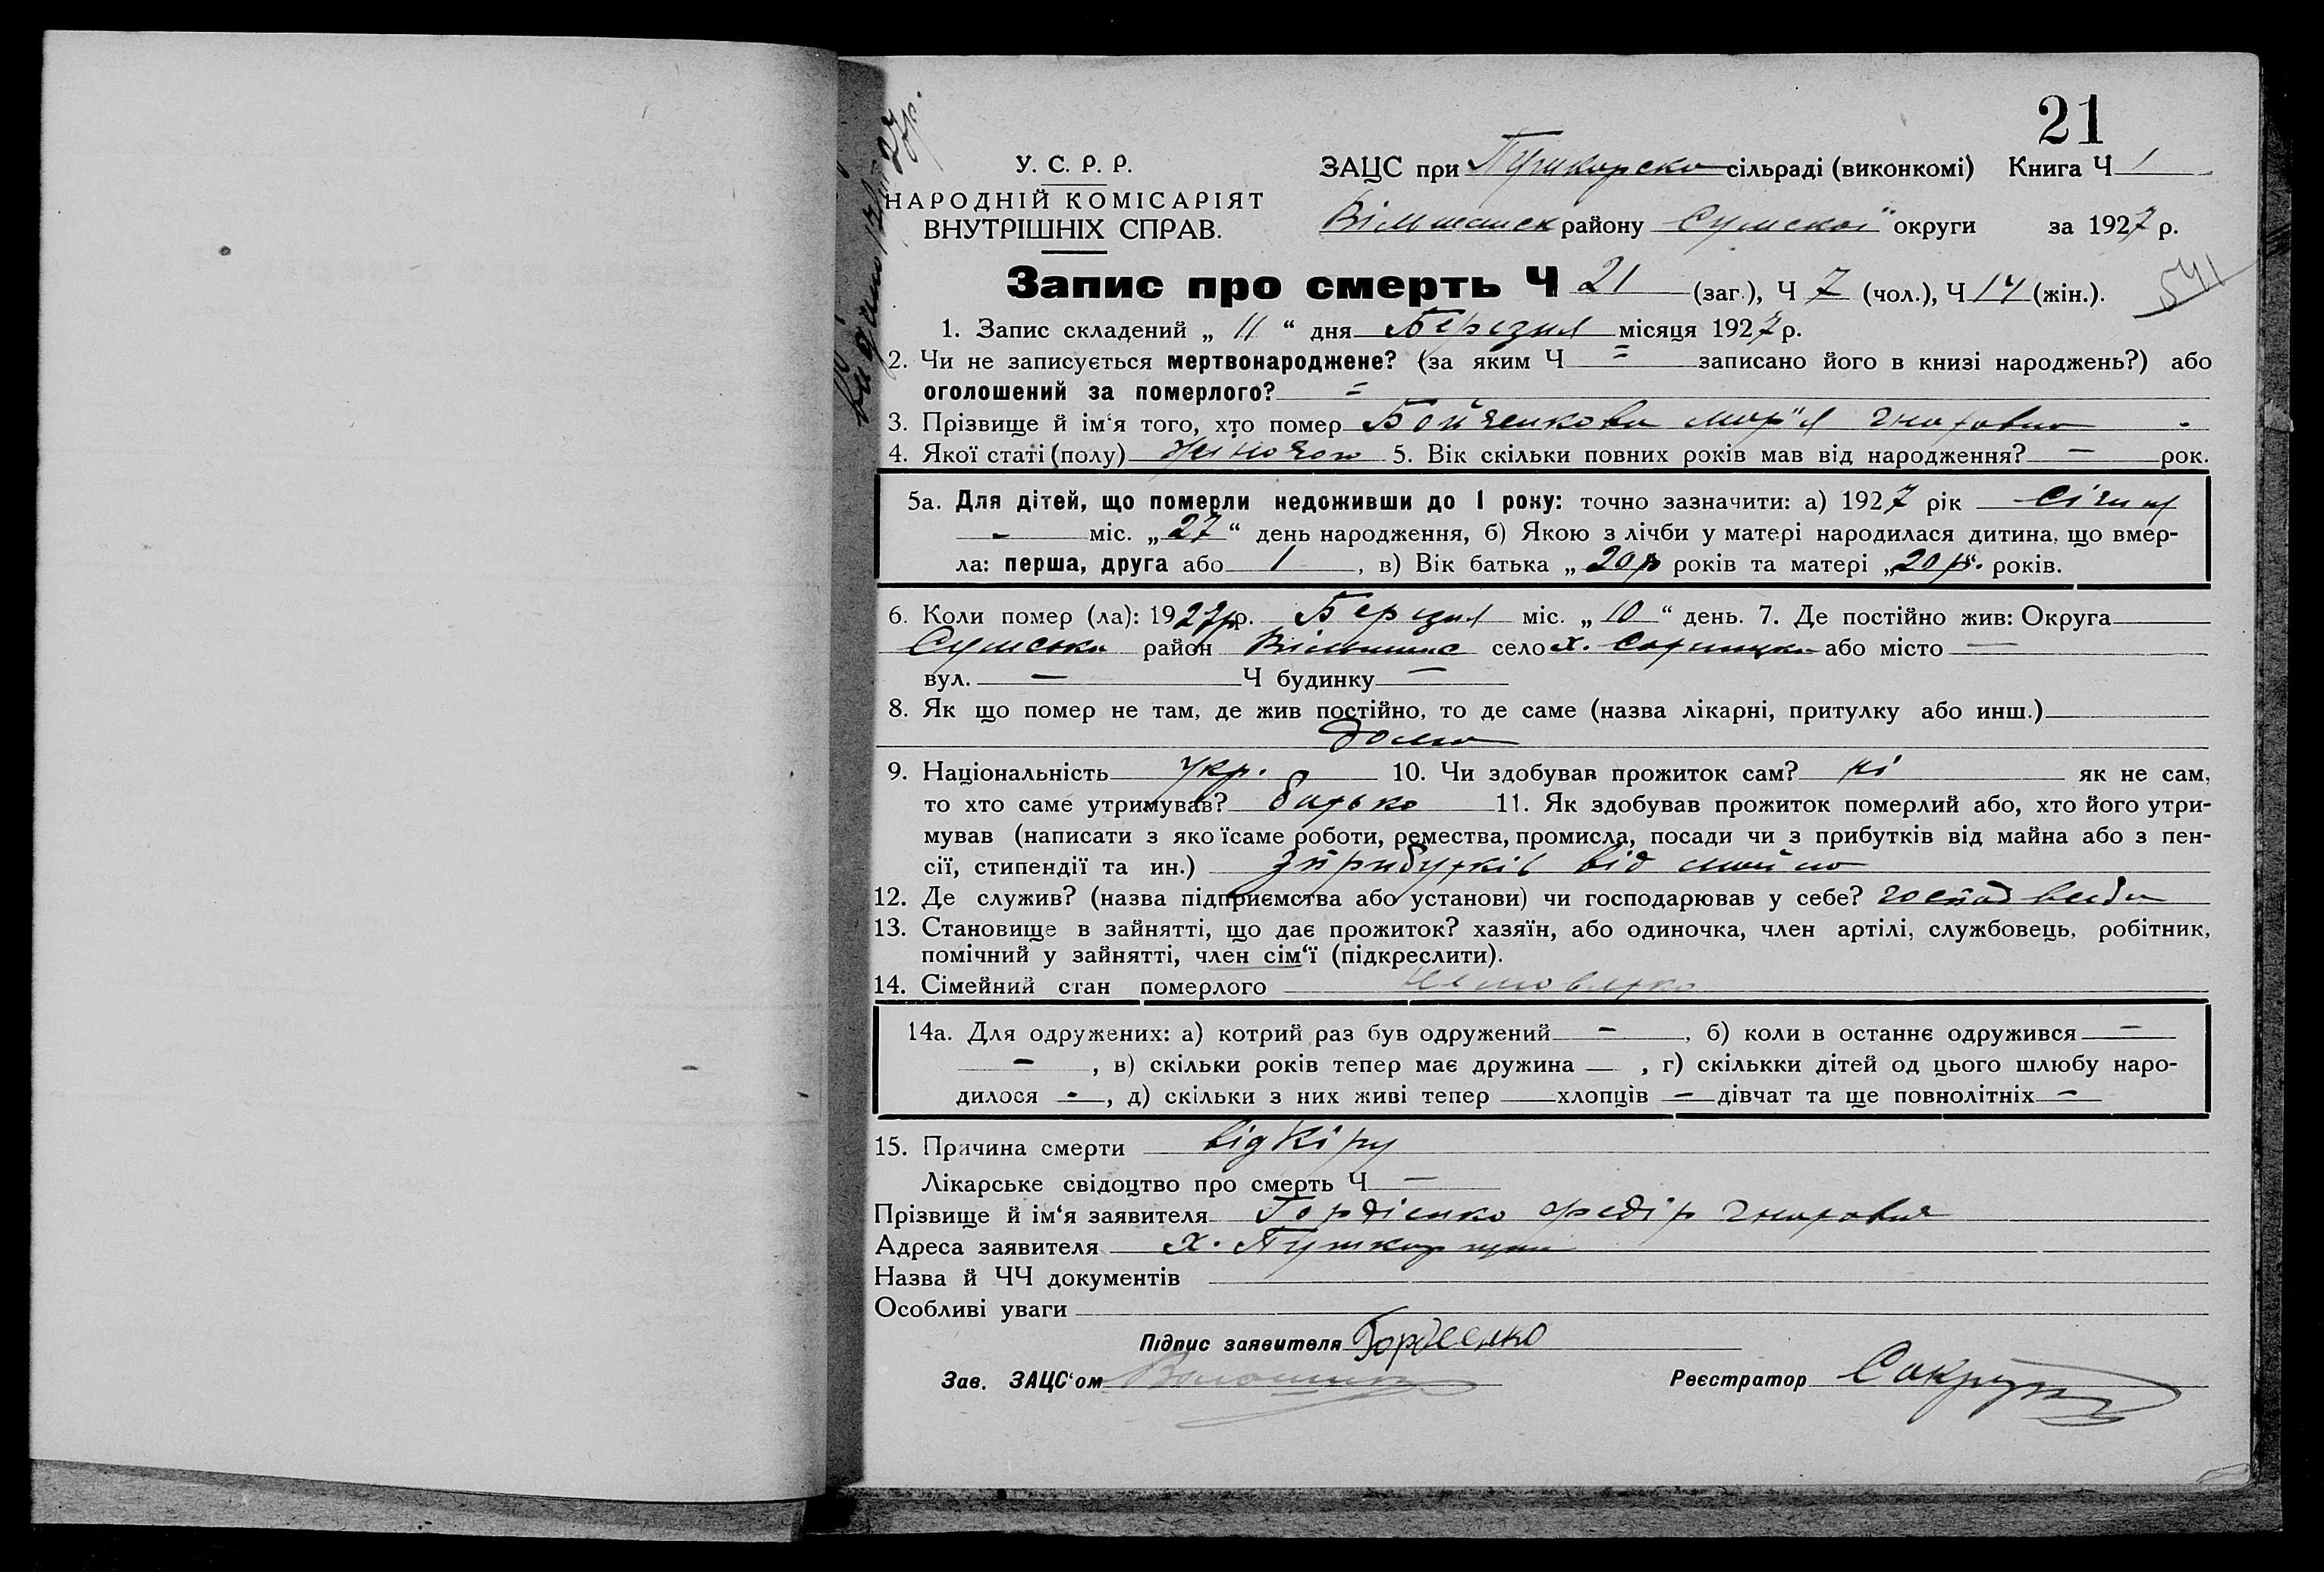 21
У. С. Р. Р.
НАРОДНІЙ КОМІСАРІЯТ
ВНУТРІШНІХ СПРАВ.
ЗАЦС при Пушкарско сільраді (виконкомі) Книга Ч 1
Вільшанск району Сумской округи за 1927 р.
Запис про смерть Ч 21 (заг.), Ч 7 (чол.), Ч 14 (жін.).
541
1. Запис складений „ 11 “ дня Березня місяця 1927 р.
2. Чи не записується мертвонароджене? (за яким Ч = записано його в книзі народжень?) або
оголошений за померлого? =
3. Прізвище й ім‘я того, хто помер Бойченкова Мар"я Гнатовна
4. Якої статі (полу) жіночою 5. Вік скільки повних років мав від народження? — рок.
5а. Для дітей, що померли недоживши до 1 року: точно зазначити: а) 1927 рік Січня
- міс. „ 27 “ день народження, б) Якою з лічби у матері народилася дитина, що вмер-
ла: перша, друга або 1 , в) Вік батька „ 20 р років та матері „ 20 р“. років.
6. Коли помер (ла): 1927р р. Березня міс. „ 10 “ день. 7. Де постійно жив: Округа
Сумська район Вільшанс село х. або місто —
вул. — Ч будинку —
8. Як що помер не там, де жив постійно, то де саме (назва лікарні, притулку або инш.)
дома
9. Національність Укр. 10. Чи здобував прожиток сам? ні як не сам,
то хто саме утримував? батько 11. Як здобував прожиток померлий або, хто його утри-
мував (написати з якоїсаме роботи, ремества, промисла, посади чи з прибутків від майна або з пен-
сії, стипендії та ин.) зприбутків від майна
12. Де служив? (назва підприємства або установи) чи господарював у себе? господ всебя
13. Становище в зайнятті, що дає прожиток? хазяїн, або одиночка, член артілі, службовець, робітник,
помічний у зайнятті, член сім‘ї (підкреслити).
14. Сімейний стан померлого немовлятко
14а. Для одружених: а) котрий раз був одружений - , б) коли в останнє одружився —
- , в) скільки років тепер має дружина — , г) скількки дітей од цього шлюбу наро-
дилося - , д) скільки з них живі тепер хлопців — дівчат та ще повнолітніх —
15. Причина смерти від Кіру
Лікарське свідоцтво про смерть Ч —
Прізвище й ім‘я заявителя Гордієнко Федір Гнатович
Адреса заявителя х. Пушкарщини
Назва й ЧЧ документів
Особливі уваги
Підпис заявителя Гордиенко
Зав. ЗАЦС‘ом Волошин
Реєстратор